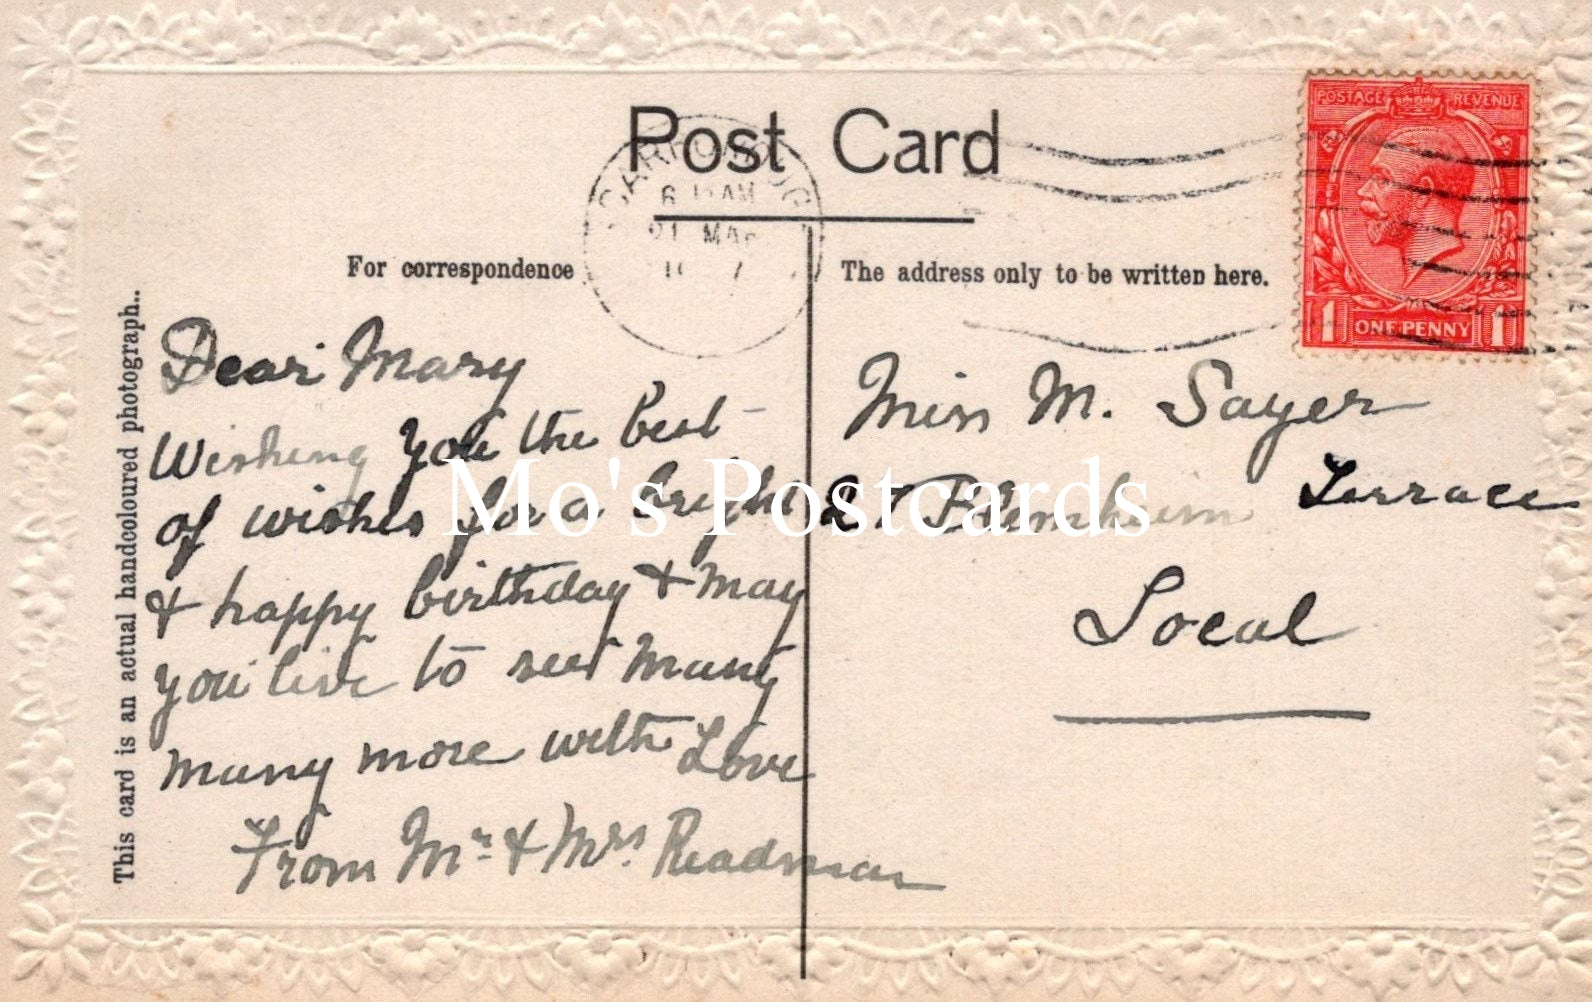 Post Card
SCARBOROUGH
For correspondence
The address only to be written here.
POSTAGE REVENUE
1 ONE PENNY 1
This card is an actual handcoloured photograph..
Dear Mary
Wishing you the best
of wishes for a bright
& happy birthday & may
you live to see many
many more with Love
From Mr & Mrs. Readman
Miss M. Sayer
27 Blenheim Terrace
Local
Mo's Postcards